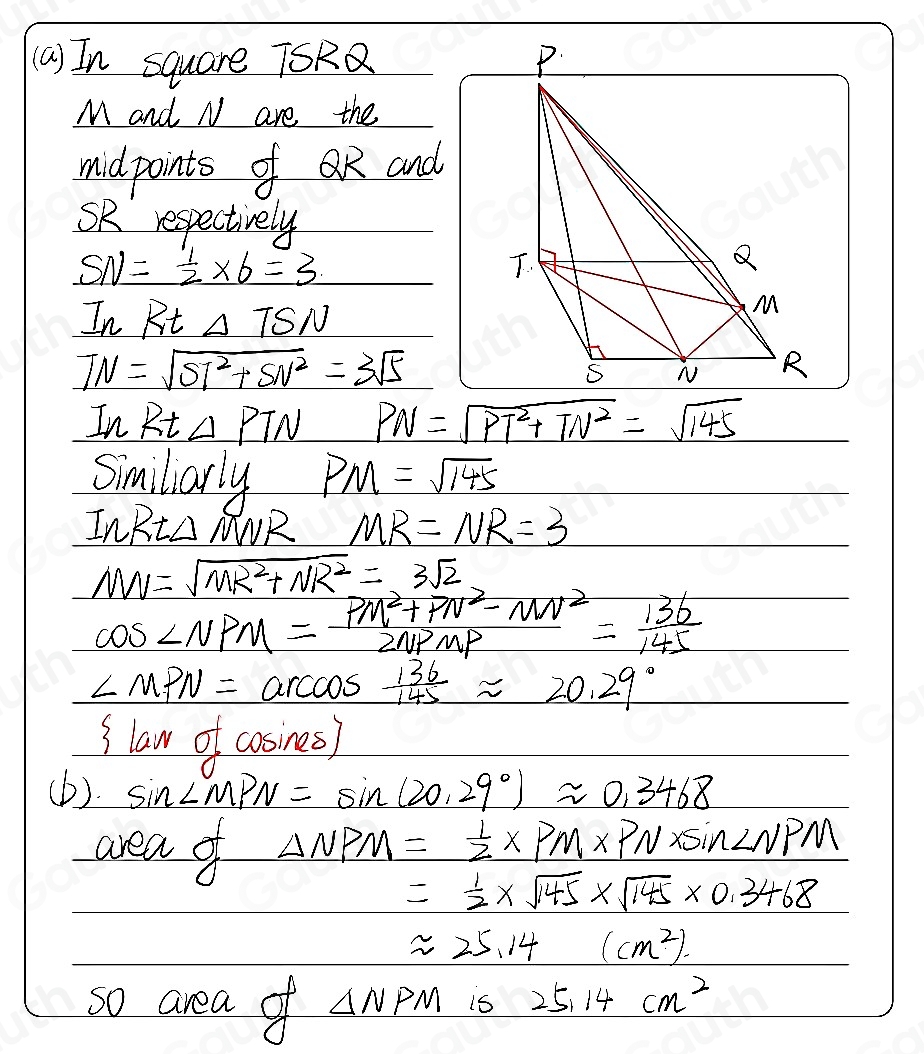 (a) In square TSRQ
M and N are the
midpoints of QR and
SR respectively
SN = 1/2 × 6 = 3.
In Rt △ TSN
TN = √(ST² + SN²) = 3√5
In Rt △ PTN PN = √(PT² + TN²) = √145
Similiarly PM = √145
In Rt △ MNR MR = NR = 3
MN = √(MR² + NR²) = 3√2
cos ∠NPM = (PM² + PN² - MN²)/(2NP MP) = 136/145
∠MPN = arccos 136/145 ≈ 20.29°
{law of cosines}
(b). sin∠MPN = sin(20.29°) ≈ 0.3468
area of △NPM = 1/2 × PM × PN × sin∠NPM
= 1/2 × √145 × √145 × 0.3468
≈ 25.14 (cm²).
so area of △NPM is 25.14 cm²
P
T
Q
M
S
N
R
Gauth